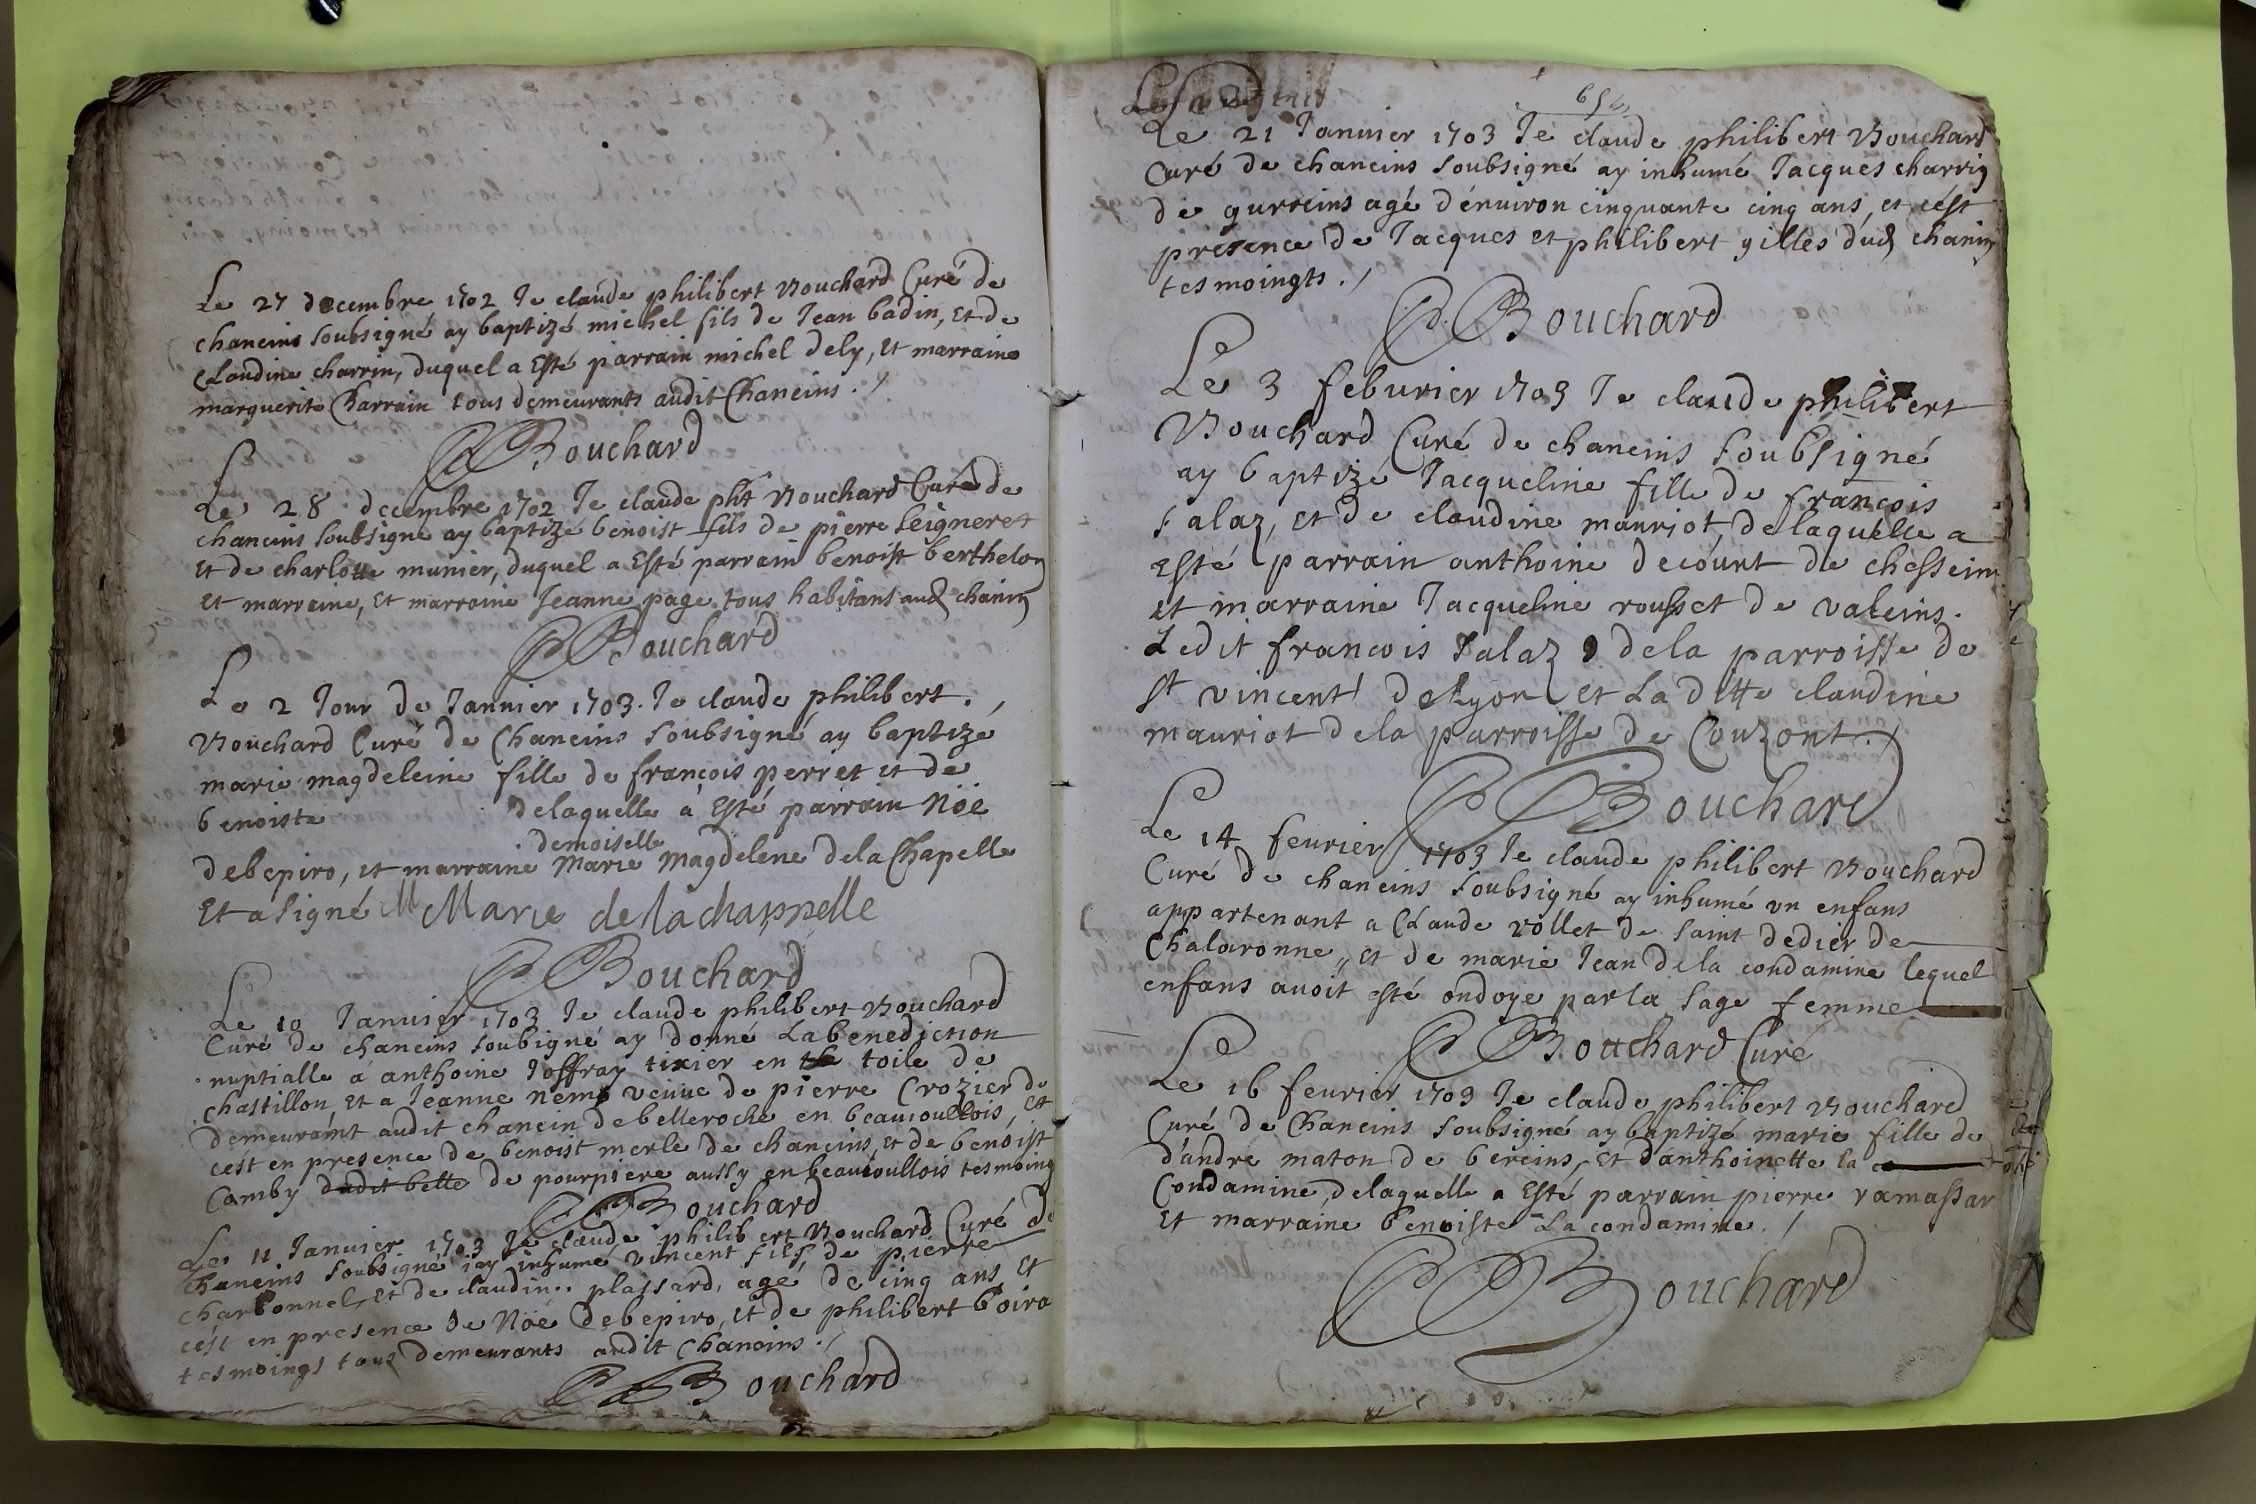 Le 27 decembre 1702 Je claude philibert Bouchard Curé de
chaneins soubsigné ay baptizé michel fils de Jean badin, et de
Claudine charrin, duquel a Esté parrain michel dely, et marraine
marguerite Charrain tous demeurants audit Chaneins ./
CPBouchard
Le 28 decembre 1702 Je claude phlt Bouchard Curé de
chaneins soubsigné ay baptizé benoist fils de pierre seigneret
et de charlotte munier, duquel a Esté parrain benoist berthelon
et marreine, et marraine Jeanne page tous habitans aud chanins
CPBouchard
Le 2 Jour de Janvier 1703. Je claude philibert.
Bouchard Curé de Chaneins soubsigné ay baptizé
marie magdeleine fille de françois perret et de
benoiste delaquelle à Esté parrain Nöé
demoiselle
debepiro, et marraine Marie Magdelene dela Chapelle
Et a signé M Marie de lachappelle
CPBouchard
Le 10 Janvier 1703 Je claude philibert Bouchard
Curé de chaneins soubigné ay donné La benediction
nuptialle a anthoine Joffray tixier en toile de
chastillon, et a Jeanne veuue de pierre Crozier de
demeurant audit chanein de belleroche en beauioullois, et
cést en presence de benoist merle de chaneins, et de benoist
Camby dudit belle de pourpiere aussy en beauioullois tesmoing
CPBouchard
Le 11 Janvier 1703 Je claude philibert Bouchard Curé de
chaneins soubsigné iay inhumé vincent fils de pierre
charbonnel, et de claudine plassard, agé de cinq ans, et
cést en presence de Nöé debepiro, et de philibert boira
tesmoings tous demeurants audit Chaneins ./
CPBouchard
Le 21 Janvier 1703 Je claude philibert Bouchard
Curé de chaneins soubsigné ay inhumé Jacques charrin
de gurreins agé d'énuiron cinquante cinq ans, et cést
presence de Jacques et philibert gilles dud chanins
tesmoingts ./
CPBouchard
Le 3 feburier 1703 Je claude philibert
Bouchard Curé de chaneins soubsigné
ay baptizé Jacqueline fille de françois
Falaz, et de claudine mauriot, delaquélle a
esté parrain anthoine decourt de chesseins
et marraine Jacqueline rousset de valeins.
Ledit francois Falaz dela parroisse de
st vincent de Lyon et La ditte claudine
mauriot dela parroisse de Couzont ./
CPBouchard
Le 14 feurier 1703 Je claude philibert Bouchard
Curé de chaneins soubsigné ay inhumé vn enfans
appartenant a Claude vollet de saint dedier de
Chalaronne, et de marie Jean dela condamine lequel
enfans auoit esté ondoye par la sage femme
CPBouchard Curé
Le 16 feurier 1703 Je claude philibert Bouchard
Curé de Chaneins soubsigné ay baptizé marie fille de
d'andre maton de bereins, et d'anthoinette la
Condamine, delaquelle a Esté parrain pierre ramassar
Et marraine benoiste La condamine ./
CPBouchard